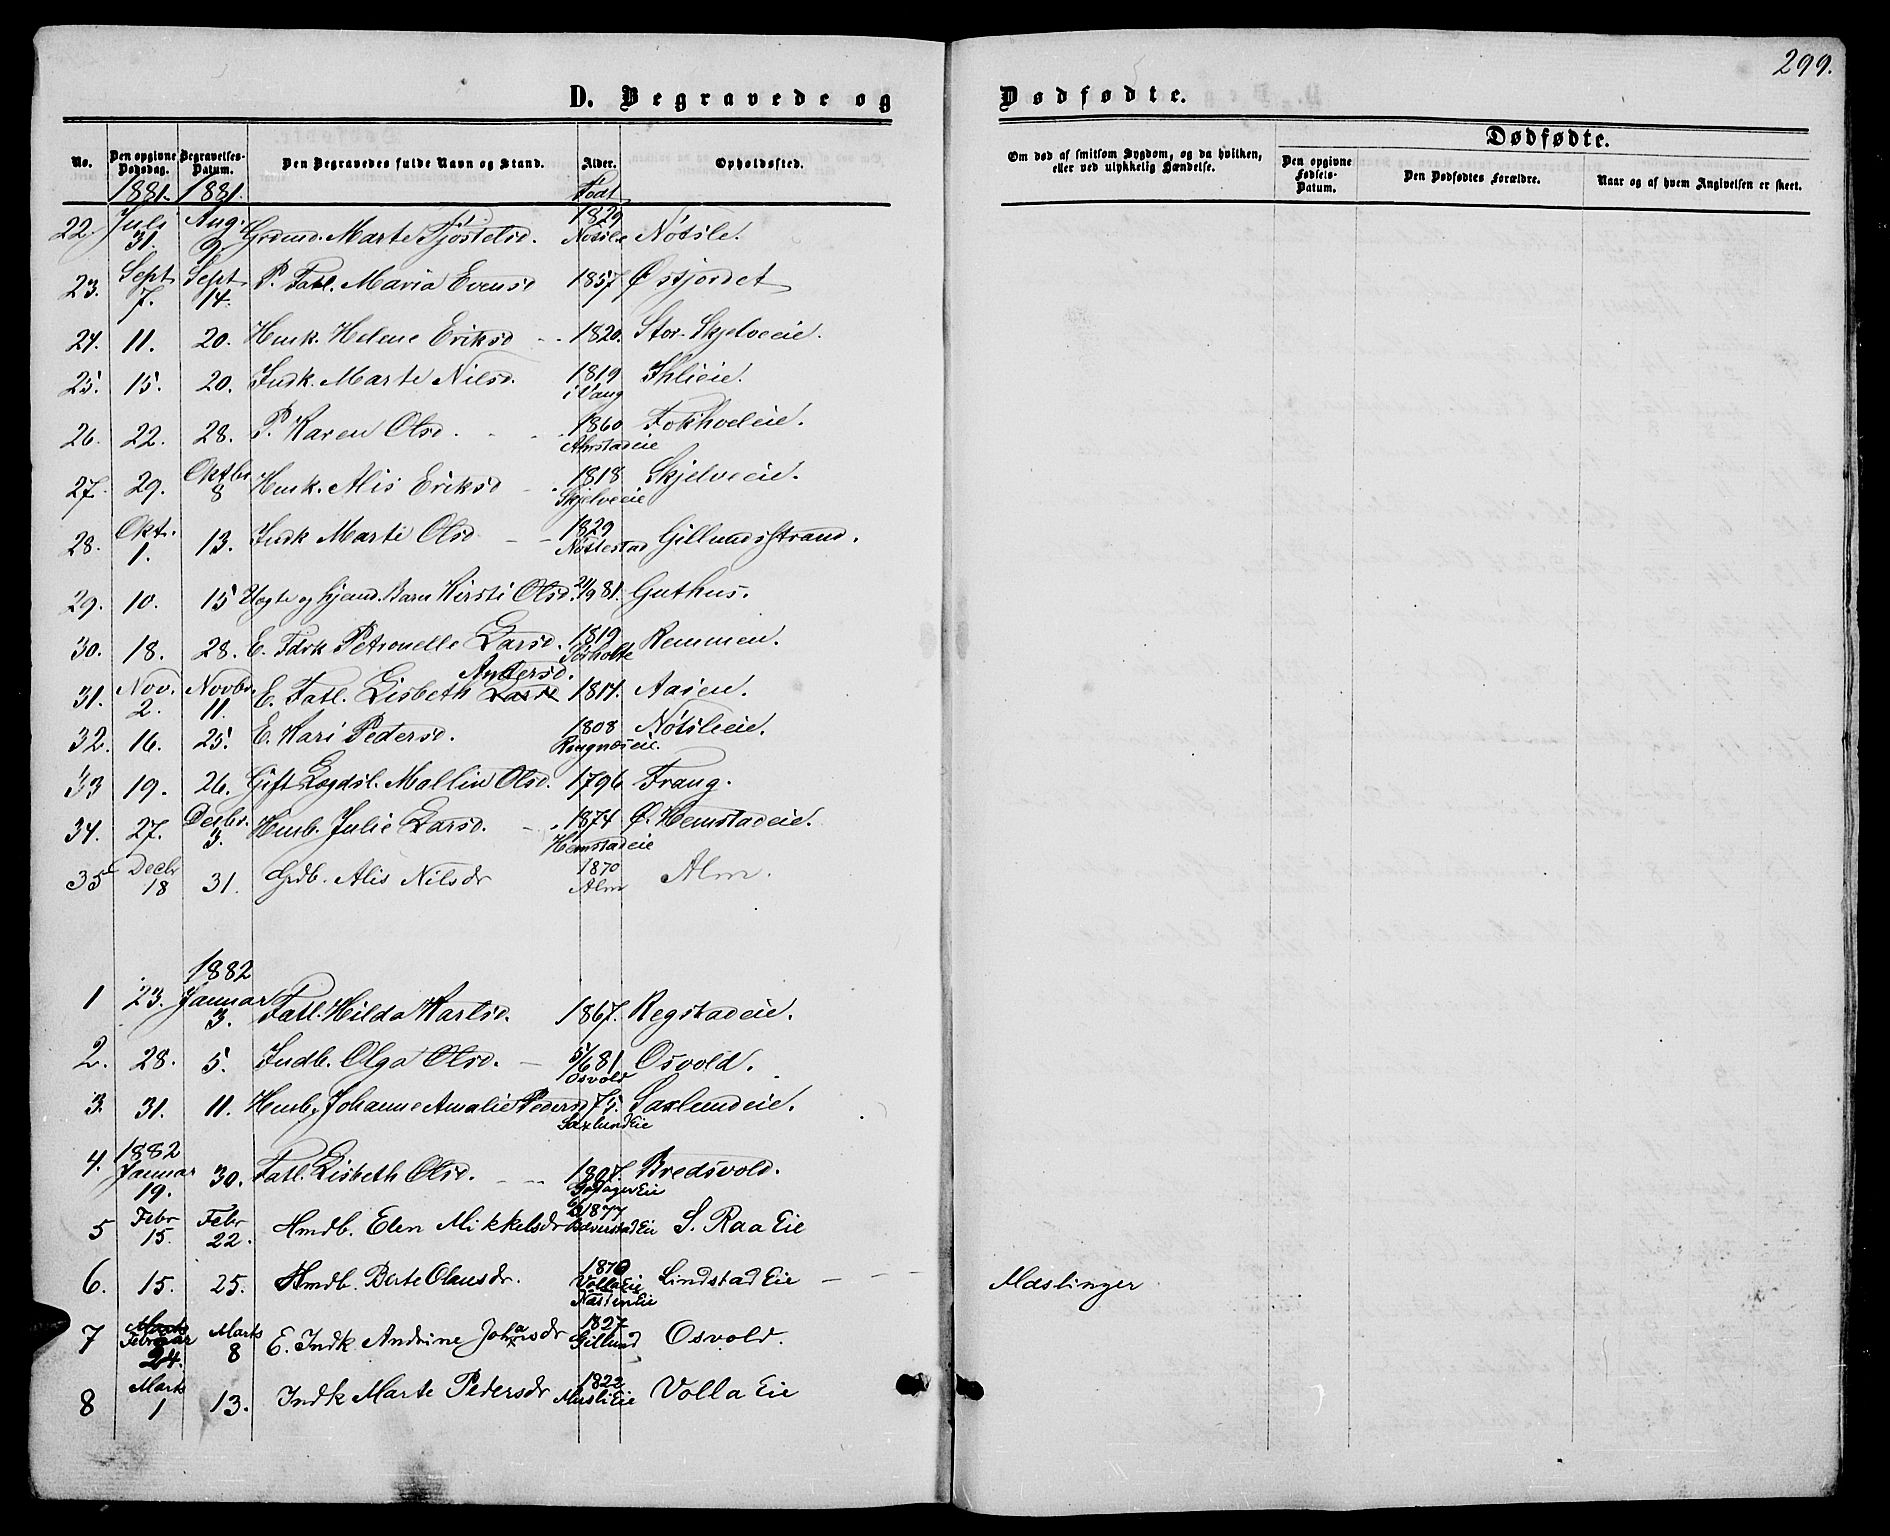 299.
D. Begravede og Dødfødte.
No. Den opgivne Dødsdag. Begravelses-Datum. Den Begravedes fulde Navn og Stand. Alder. Opholdssted.
Om død af smitsom Sygdom, og da hvilken, eller ved ulykkelig Hændelse.
Dødfødte.
Den opgivne Fødsels-Datum. Den Dødfødtes Forældre. Naar og af hvem Angivelsen er skeet.
1881. 1881. Født
22. Juli 31. Aug. 9. Grdmd. Marte Tjøstelsd. 1829 Nøtsle Nøtsle.
23. Sept 7. Sept 14. P. Fatl. Maria Evensd 1857 Østjordet
24. 11. 20. Husk. Helene Eriksd 1820. Stor-Skjelveeie.
25. 15. 20. Indk. Marte Nilsd. 1819 i Vang Ihlieie.
26. 22. 28. P. Karen Olsd. 1860 Ahrstadeie Fokhoeleie.
27. 29. Oktbr 8 Husk. Alis Eriksd 1818 Skjelveeie Skjelveeie.
28. Okt. 1. 13. Indk Marte Olsd 1829 Nøttestad Gillundsstrand.
29. 10. 15 Uægte og hjemd. Barn Kirsti Olsd. 21/9 81. Guthus.
30. 18. 28. E. Fdrk Petronelle Larsd. 1819 Remmen.
Andersd.
31. Nov. 2. Novbr. 11. E. Fatl. Lisbeth Larsd 1814. Aasen.
32. 16. 25. E. Kari Pedersd. 1808 Rognæseie. Nøtsleeie.
33 19. 26. Gift Lægdsl. Mallin Olsd. 1796 Frang.
34. 27. Decbr. 3. Husb. Julie Larsd. 1874 Hemstadeie Ø. Hemstadeie.
35 Decbr 18 31. Grdb. Alis Nilsdr 1870 Alm Alm.
1882
1 23. Januar 3. Fatl. Hilda Karlsd. 1867. Regstadeie.
2. 28. 5. Indb. Olga Olsd. 5/6 81. Osvold Osvold.
3. 31. 11. Husb. Johanne Amalie Pedersd 75. Saxlund Eie Saxlundeie.
1882
4. Januar 19. 30. Fatl. Lisbeth Olsd. 1807. Bredsvold.
5 Febr 15. Febr 22. Hmdb. Elen Mikkelsdr 1877 S. Raa Eie
6. 15. 25. Hmdb. Berte Olausdr. 1870 Volla Eie Næsten Eie Lindstad Eie Mæslinger
7 Marts Februar 24. Marts 8 E. Indk Andrine Johansdr 1827 Gillund Osvold.
8 Marts 1 13. Indk Marte Pedersdr 1822 Musli Eie Volla Eie